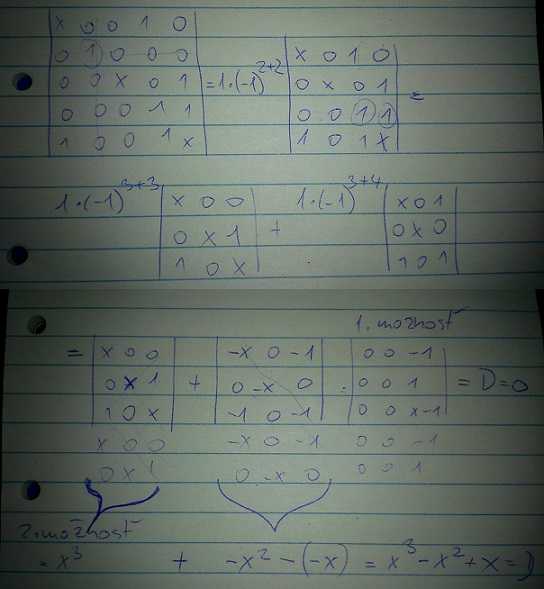 x 0 0 1 0
0 1 0 0 0
0 0 x 0 1 = 1·(-1)^2+2
0 0 0 1 1
1 0 0 1 x
x 0 1 0
0 x 0 1
0 0 1 1 =
1 0 1 x
1·(-1)^3+3
x 0 0
0 x 1
1 0 x
+
1·(-1)^3+4
x 0 1
0 x 0
1 0 1
1. možnosť
=
x 0 0
0 x 1
1 0 x
x 0 0
0 x 1
+
-x 0 -1
0 -x 0
-1 0 -1
-x 0 -1
0 -x 0
·
0 0 -1
0 0 1
0 0 x-1
0 0 -1
0 0 1
= D = 0
2. možnosť
= x^3 + -x^2 - (-x) = x^3 - x^2 + x = D